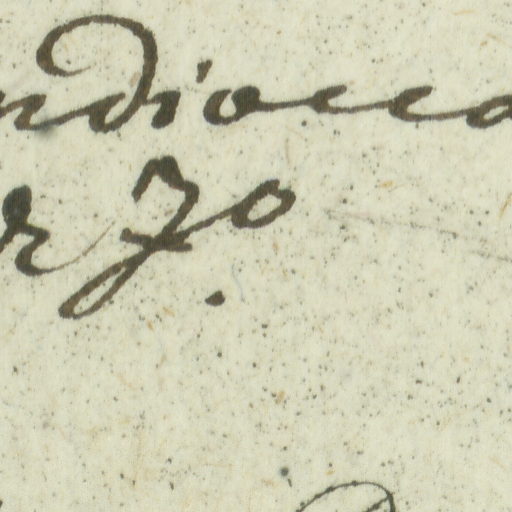 ndiocca
r zo